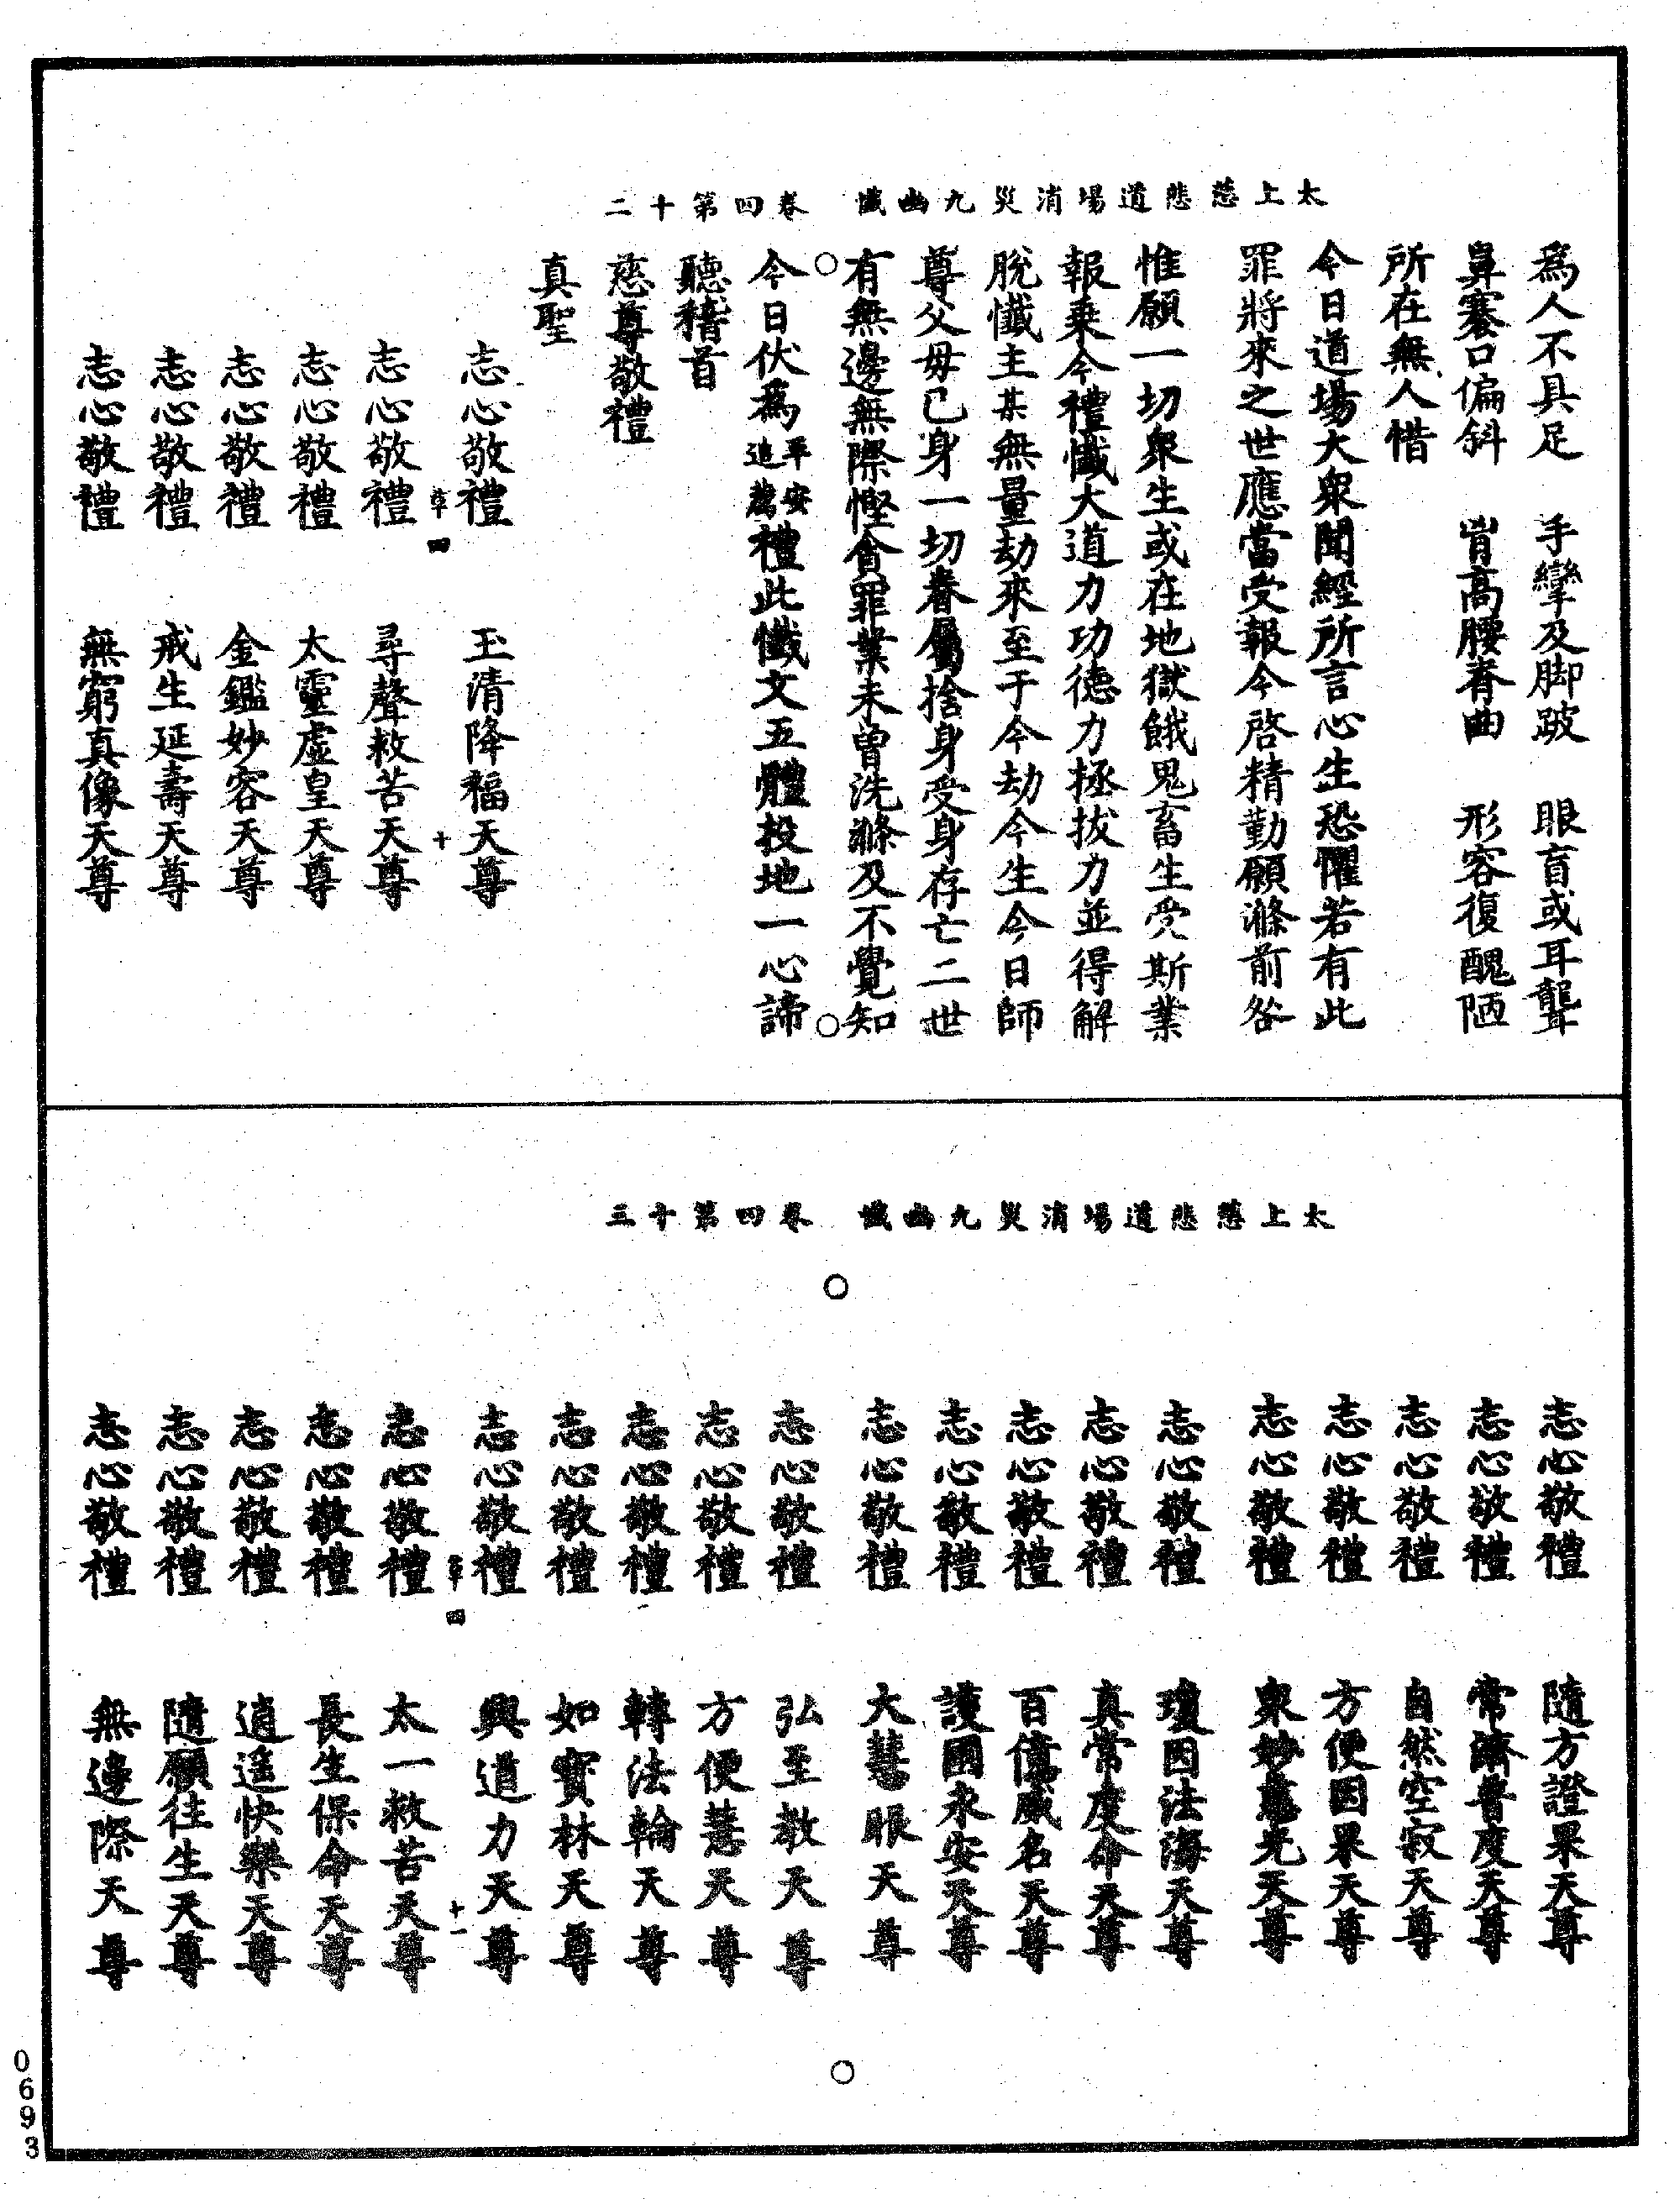 太上慈悲道場消災九幽懺　卷四第十二
為人不具足　手攣及脚跛　眼盲或耳聾
鼻褰口偏斜　背高腰脊曲　形容復醜陋
所在無人惜
今日道場大衆聞經所言心生恐懼若有此
罪將來之世應當受報今啓精勤願滌前咎
惟願一切衆生或在地獄餓鬼畜生受斯業
報乗今禮懺大道力功德力拯拔力並得解
脫懺主某無量劫來至于今劫今生今日師
尊父母己身一切眷屬捨身受身存亡二世
有無邊無際慳貪罪業未曾洗滌及不覺知
今日伏為平安追薦禮此懺文五體投地一心諦
聽稽首
慈尊敬禮
真聖
志心敬禮　玉清降福天尊
尊四　十
志心敬禮　尋聲救苦天尊
志心敬禮　太靈虛皇天尊
志心敬禮　金鑑妙容天尊
志心敬禮　戒生延壽天尊
志心敬禮　無窮真像天尊
太上慈悲道場消災九幽懺　卷四第十三
志心敬禮　隨方證果天尊
志心敬禮　常濟普度天尊
志心敬禮　自然空寂天尊
志心敬禮　方便因果天尊
志心敬禮　衆妙慧光天尊
志心敬禮　瓊因法海天尊
志心敬禮　真常度命天尊
志心敬禮　百億威名天尊
志心敬禮　護國永安天尊
志心敬禮　大慧眼天尊
志心敬禮　弘至教天尊
志心敬禮　方便慧天尊
志心敬禮　轉法輪天尊
志心敬禮　如寶林天尊
志心敬禮　興道力天尊
尊四　十一
志心敬禮　太一救苦天尊
志心敬禮　長生保命天尊
志心敬禮　逍遥快樂天尊
志心敬禮　隨願往生天尊
志心敬禮　無邊際天尊
0693